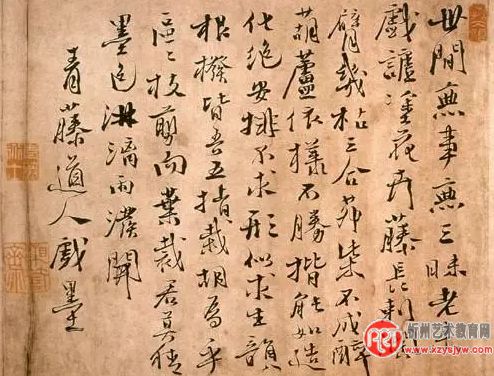 世間無事無三昧老來
戲謔塗花卉藤長刺闊
臂幾枯三合茅柴不成醉
葫蘆依樣不勝揩能如造
化絕安排不求形似求生韻
根撥皆吾五指栽胡為乎
區區枝剪而葉裁君莫猜
墨色淋漓雨潑開
青藤道人戲墨
忻州艺术教育网
www.xzysjyw.com